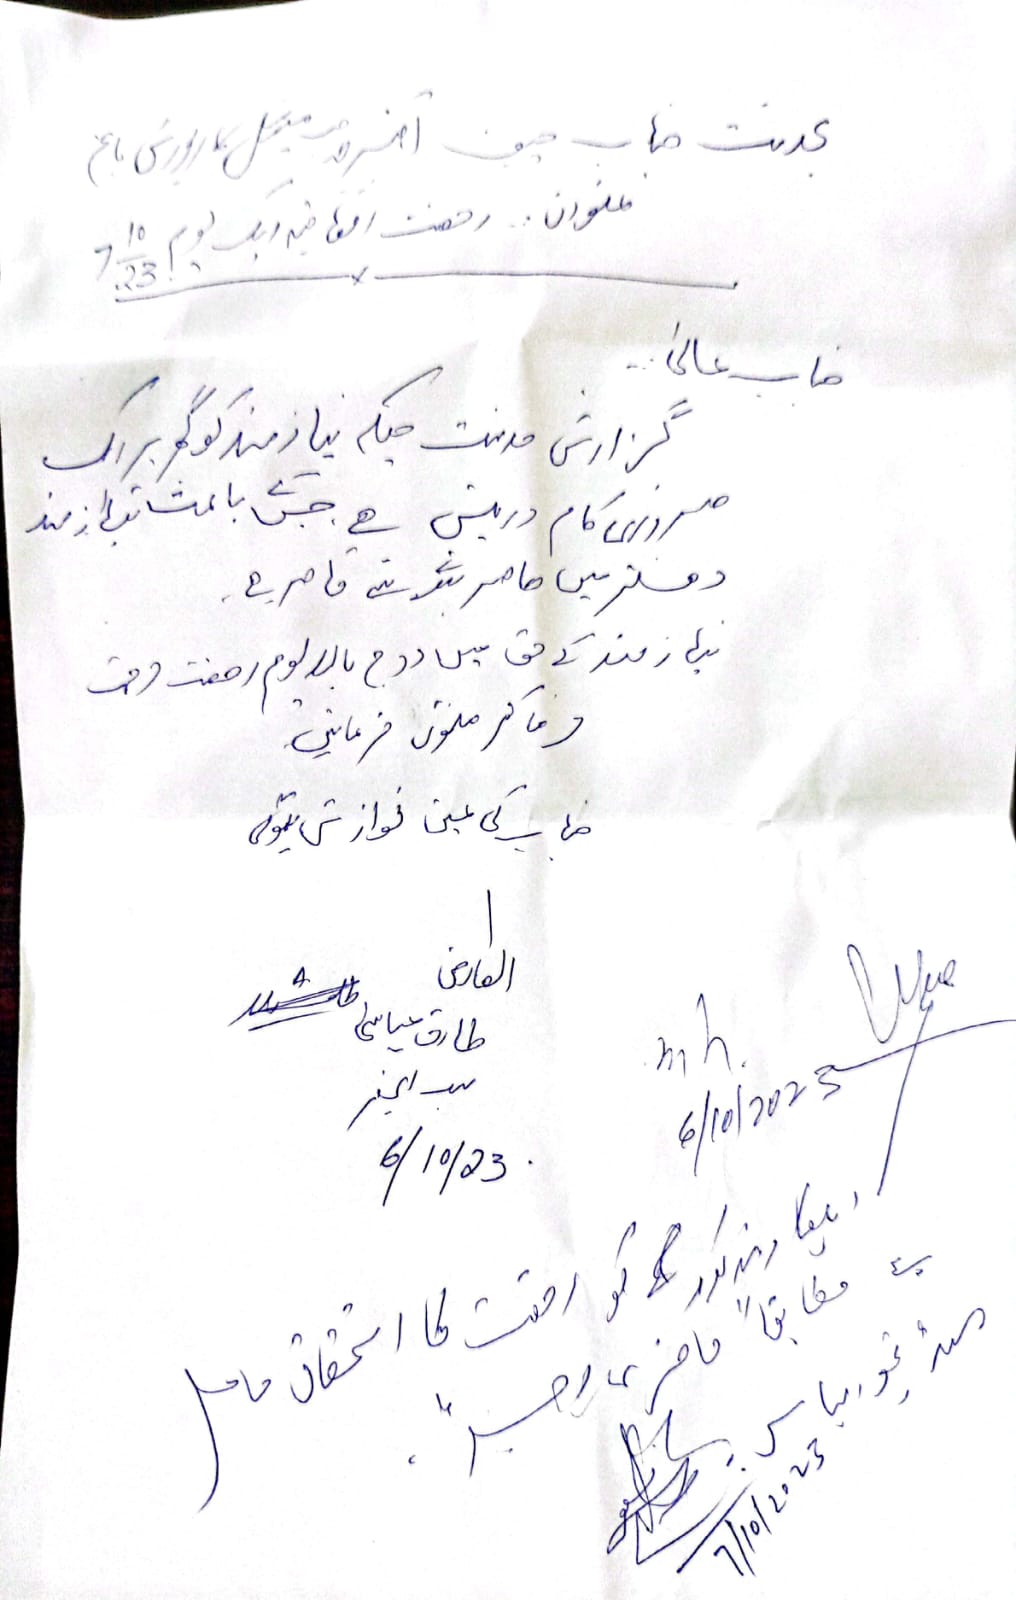 بخدمت جناب چیف آفیسر میونسپل کارپوریشن باغ
عنوان :۔ رخصت اتفاقیہ ایک یوم 7 10/23
جناب عالیٰ ...
گزارش خدمت ہیکہ نیازمند کو گھر پر ایک
ضروری کام درپیش ہے جسکے باعث نیازمند
دفتر میں حاضر ہونے سے قاصر ہے۔
نیازمند کے حق میں درج بالا یوم رخصت مرحمت
فرما کر ممنون فرمائیں
جناب کی عین نوازش ہوگی
العارض
طارق عباسی
سب انجینئر
6/10/23
6/10/2023
اہلکار مذکور کو رخصت کا استحقاق حاصل
ہے مطابقاً حاضری رجسٹر"۔
7/10/2023